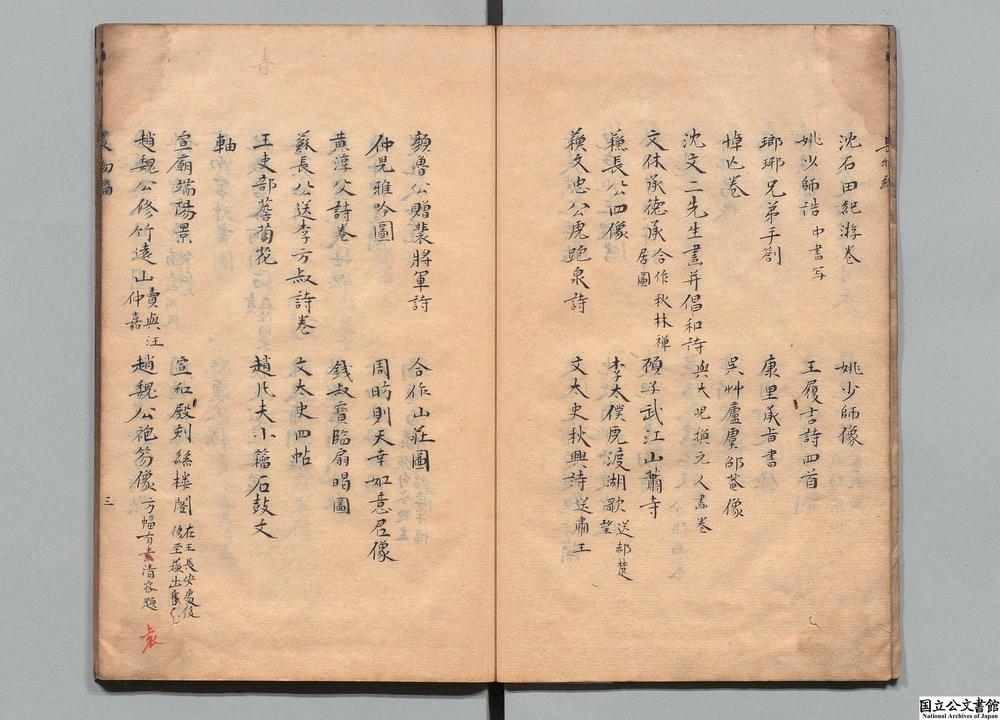 沈石田紀游卷　姚少師像
姚少師誥 中書写　王履吉詩四首
瑯琊兄弟手劄　康里承旨書
悼亡卷　吳艸廬虞邵菴像
沈文二先生畫并倡和詩 與大兒換元人畫卷
文休承德承 合作秋林禅居圖　顧子武江山蕭寺
蘓長公四像　李太僕虎渡湖歌 送郝楚望
蘓文忠公虎跑泉詩　文太史秋興詩 送肅王
顏魯公贈裴將軍詩　合作山莊圖
仲兄雅吟圖　周昉則天幸如意君像
黃淳父詩卷　錢叔寶臨扇唱圖
蘓長公送李方叔詩卷　文太史四帖
王吏部薝蔔花　趙凡夫小籀石鼓文
軸
宣廟端陽景　宣和殿刻絲樓閣 在王長安處後
趙魏公修竹遠山 賣與汪仲嘉　趙魏公袍笏像 方幅有袁清容題
袁
三
国立公文書館
National Archives of Japan